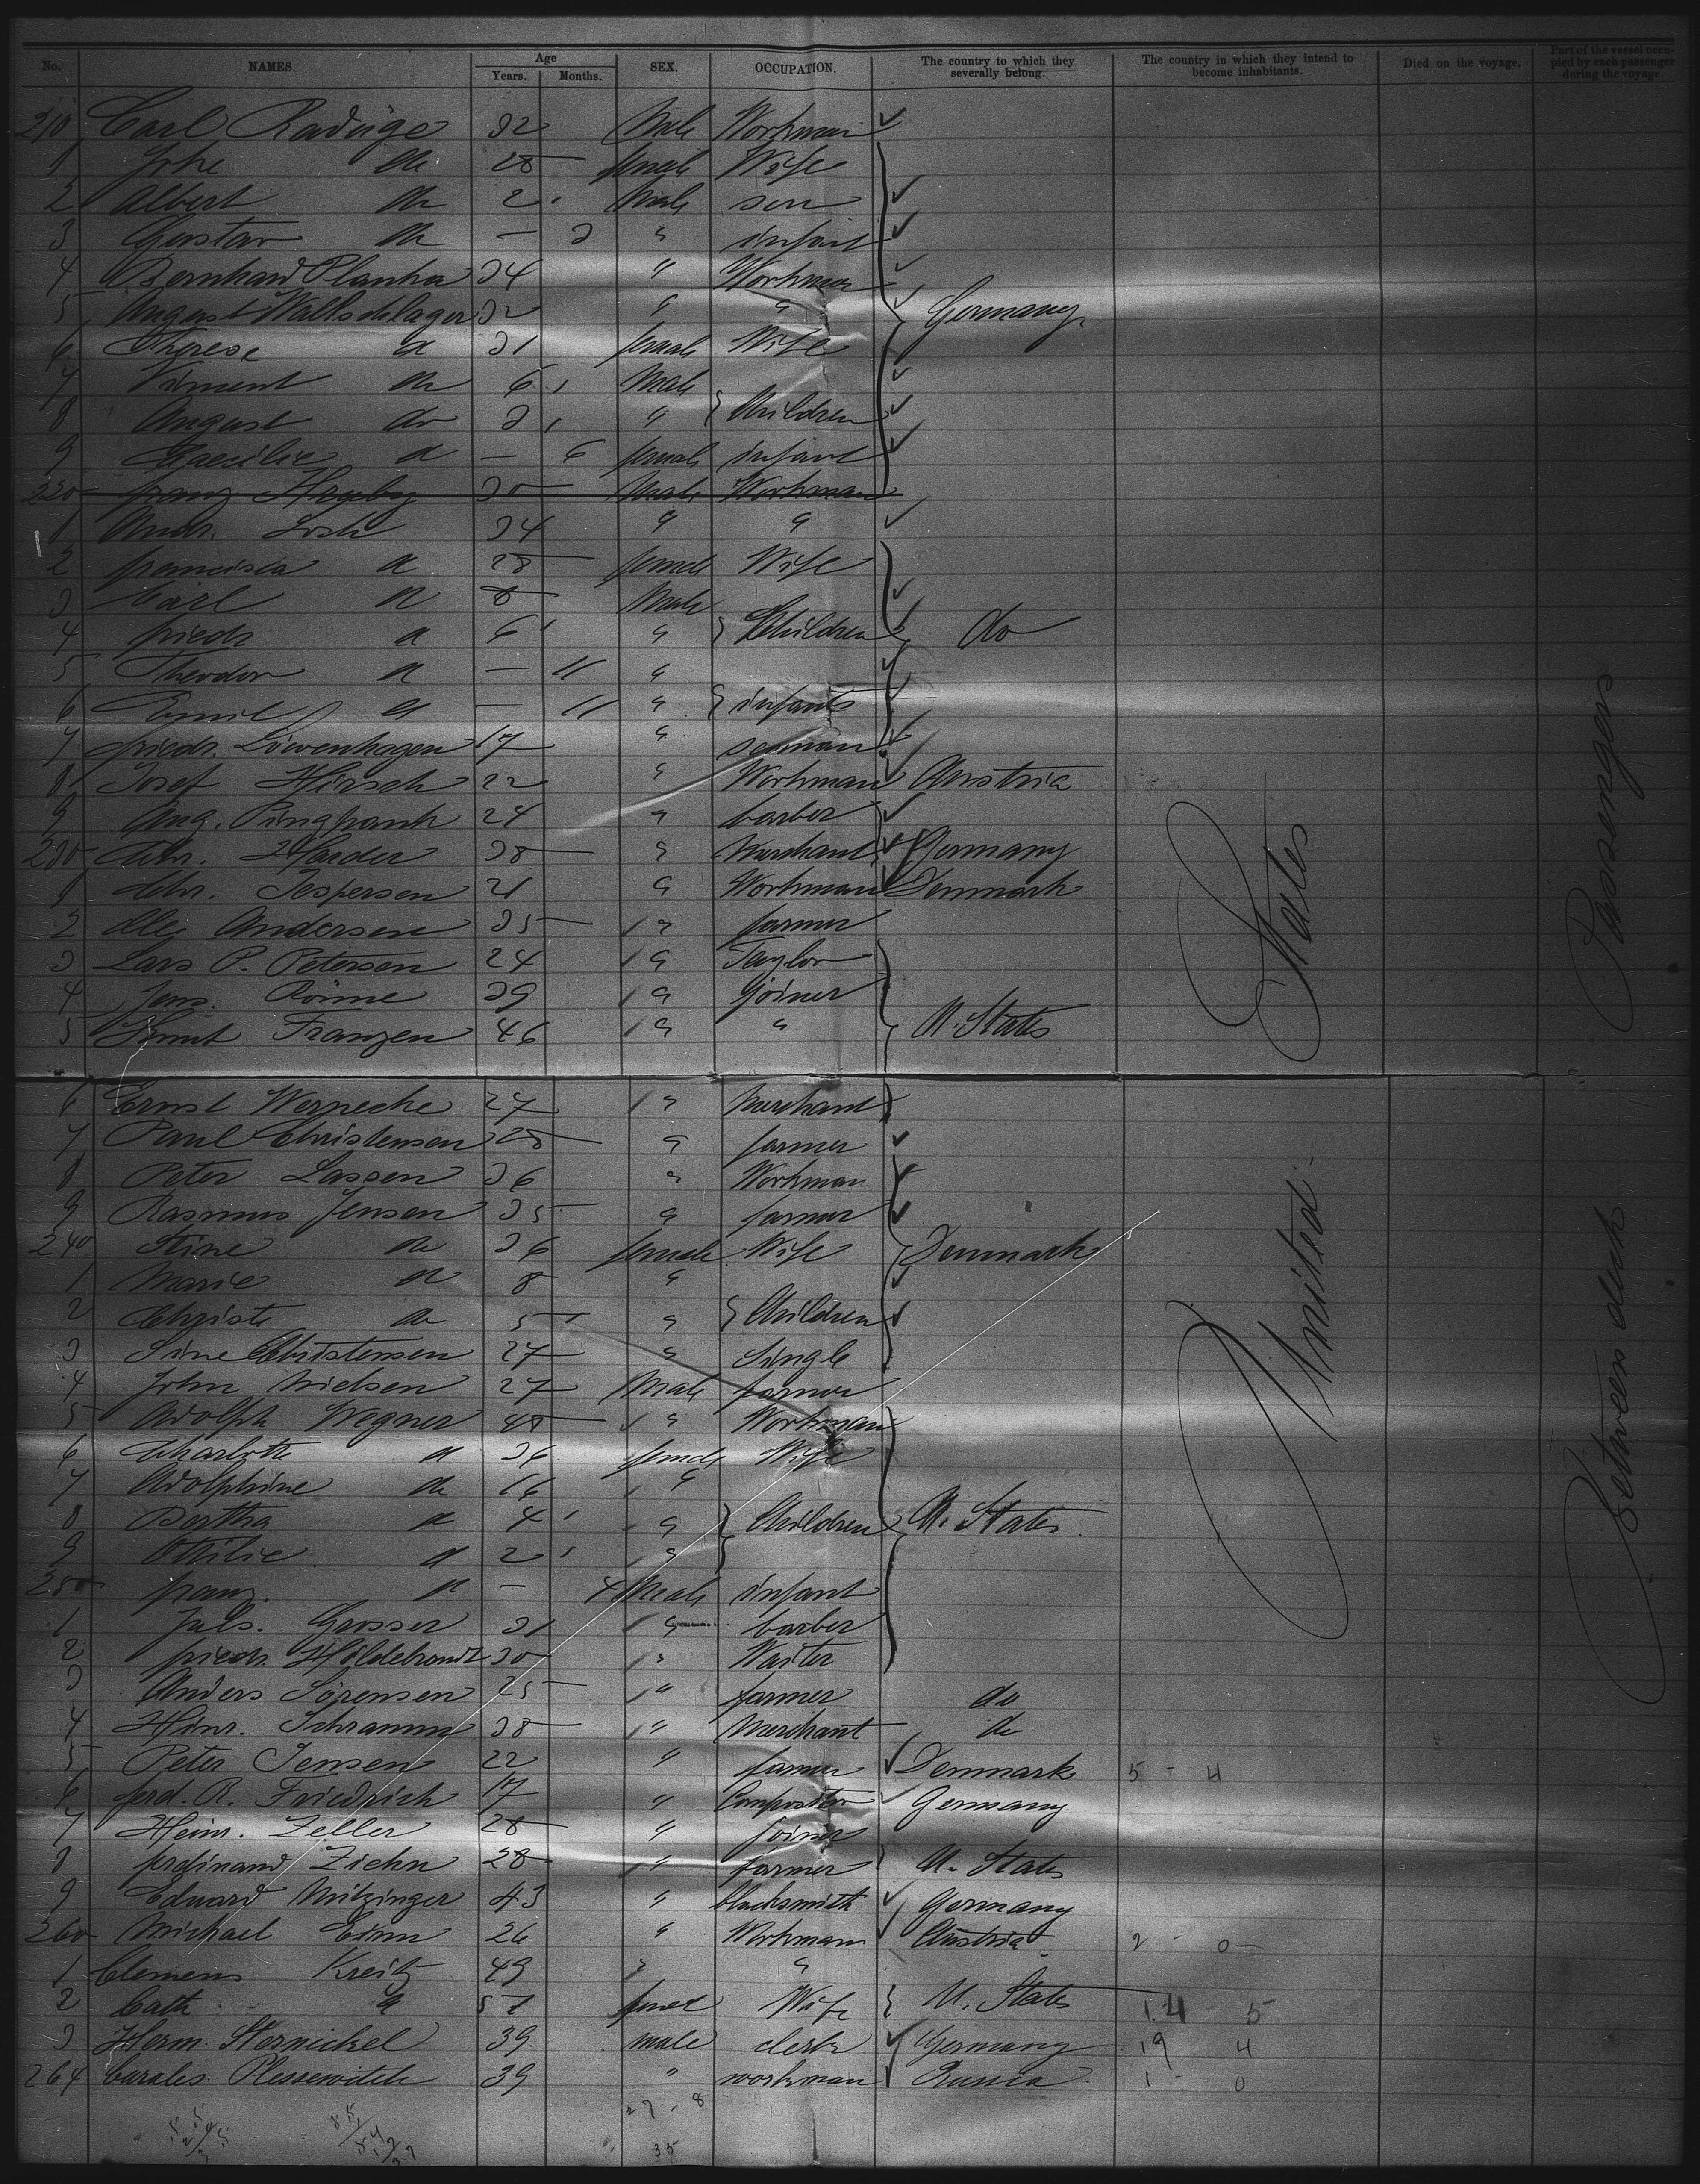 No. NAMES. Age Years. Months. SEX. OCCUPATION. The country to which they severally belong. The country in which they intend to become inhabitants. Died on the voyage. Part of the vessel occupied by each passenger during the voyage.
210 Carl Radüge 32 Male Workman
1 do 28 female Wife
2 Albert do 2 Male son
3 Gustav do — 3 " infant
4 Bernhard Planka 34 " Workman
5 August Wallschlager 32 " " Germany
6 Therese do 31 female Wife
7 Vincent do 6 Male
8 August do 3 " Children
9 Caecilie do — 6 female infant
220 franz 30 Male Workman
1 Andr. 34 " "
2 francisca do 28 female Wife
3 Carl do 8 Male
4 friedr do 6 " Children do
5 Theodor do — 11 "
6 Emil do — 11 " infants
7 friedr. Löwenhagen 17 " seaman
8 Josef Hirsch 22 " Workman Austria
9 Aug. Pingpank 24 " barber
230 Chr. Harder 38 " Merchant Germany
1 Chr. Jespersen 21 " Workman Denmark
2 Ole Andersen 35 " farmer
3 Lars P. Petersen 24 " Taylor
4 Jens. Rönne 39 " Joiner
5 Knut Franzen 46 " " U. States
6 Ernst Wernecke 27 " Merchant
7 Paul Christensen 28 " farmer
8 Peter Lassen 36 " Workman
9 Rasmus Jensen 35 " farmer
240 Stine do 36 female Wife Denmark
1 Marie do 8 "
2 Christe do 5 " Children
3 Sine Christensen 27 " Single
4 John Nielsen 27 Male farmer
5 Adolph Wegner 48 " Workman
6 Charlotte do 36 female Wife
7 Adolphine do 16 "
8 Bertha do 4 " Children U. States
9 Ottilie do 2 "
250 franz. do — 4 Male infant
1 Juls. Grosser 31 " barber
2 friedr. Hildebrandt 30 " Waiter
3 Anders Sörensen 25 " farmer do
4 Hinr. Schramm 38 " Merchant do
5 Peter Jensen 22 " farmer Denmark 5 - 4
6 ferd. R. Friedrich 17 " Compositor Germany
7 Heinr. Zeller 28 " joiner
8 ferdinand Ziehn 28 " farmer U. States
9 Eduard Mitzinger 43 " blacksmith Germany
260 Michael 26 " Workman Austria 2 - 0
1 Clemens Kreitz 49 " "
2 Cath do 57 femal Wife U. States 14 5
3 Herm. Sternickel 39 male clerk Germany 19 4
264 Carales Plessewitch 39 " workman Russia 1 - 0
27 - 8
35
United States
Between deck Passengers